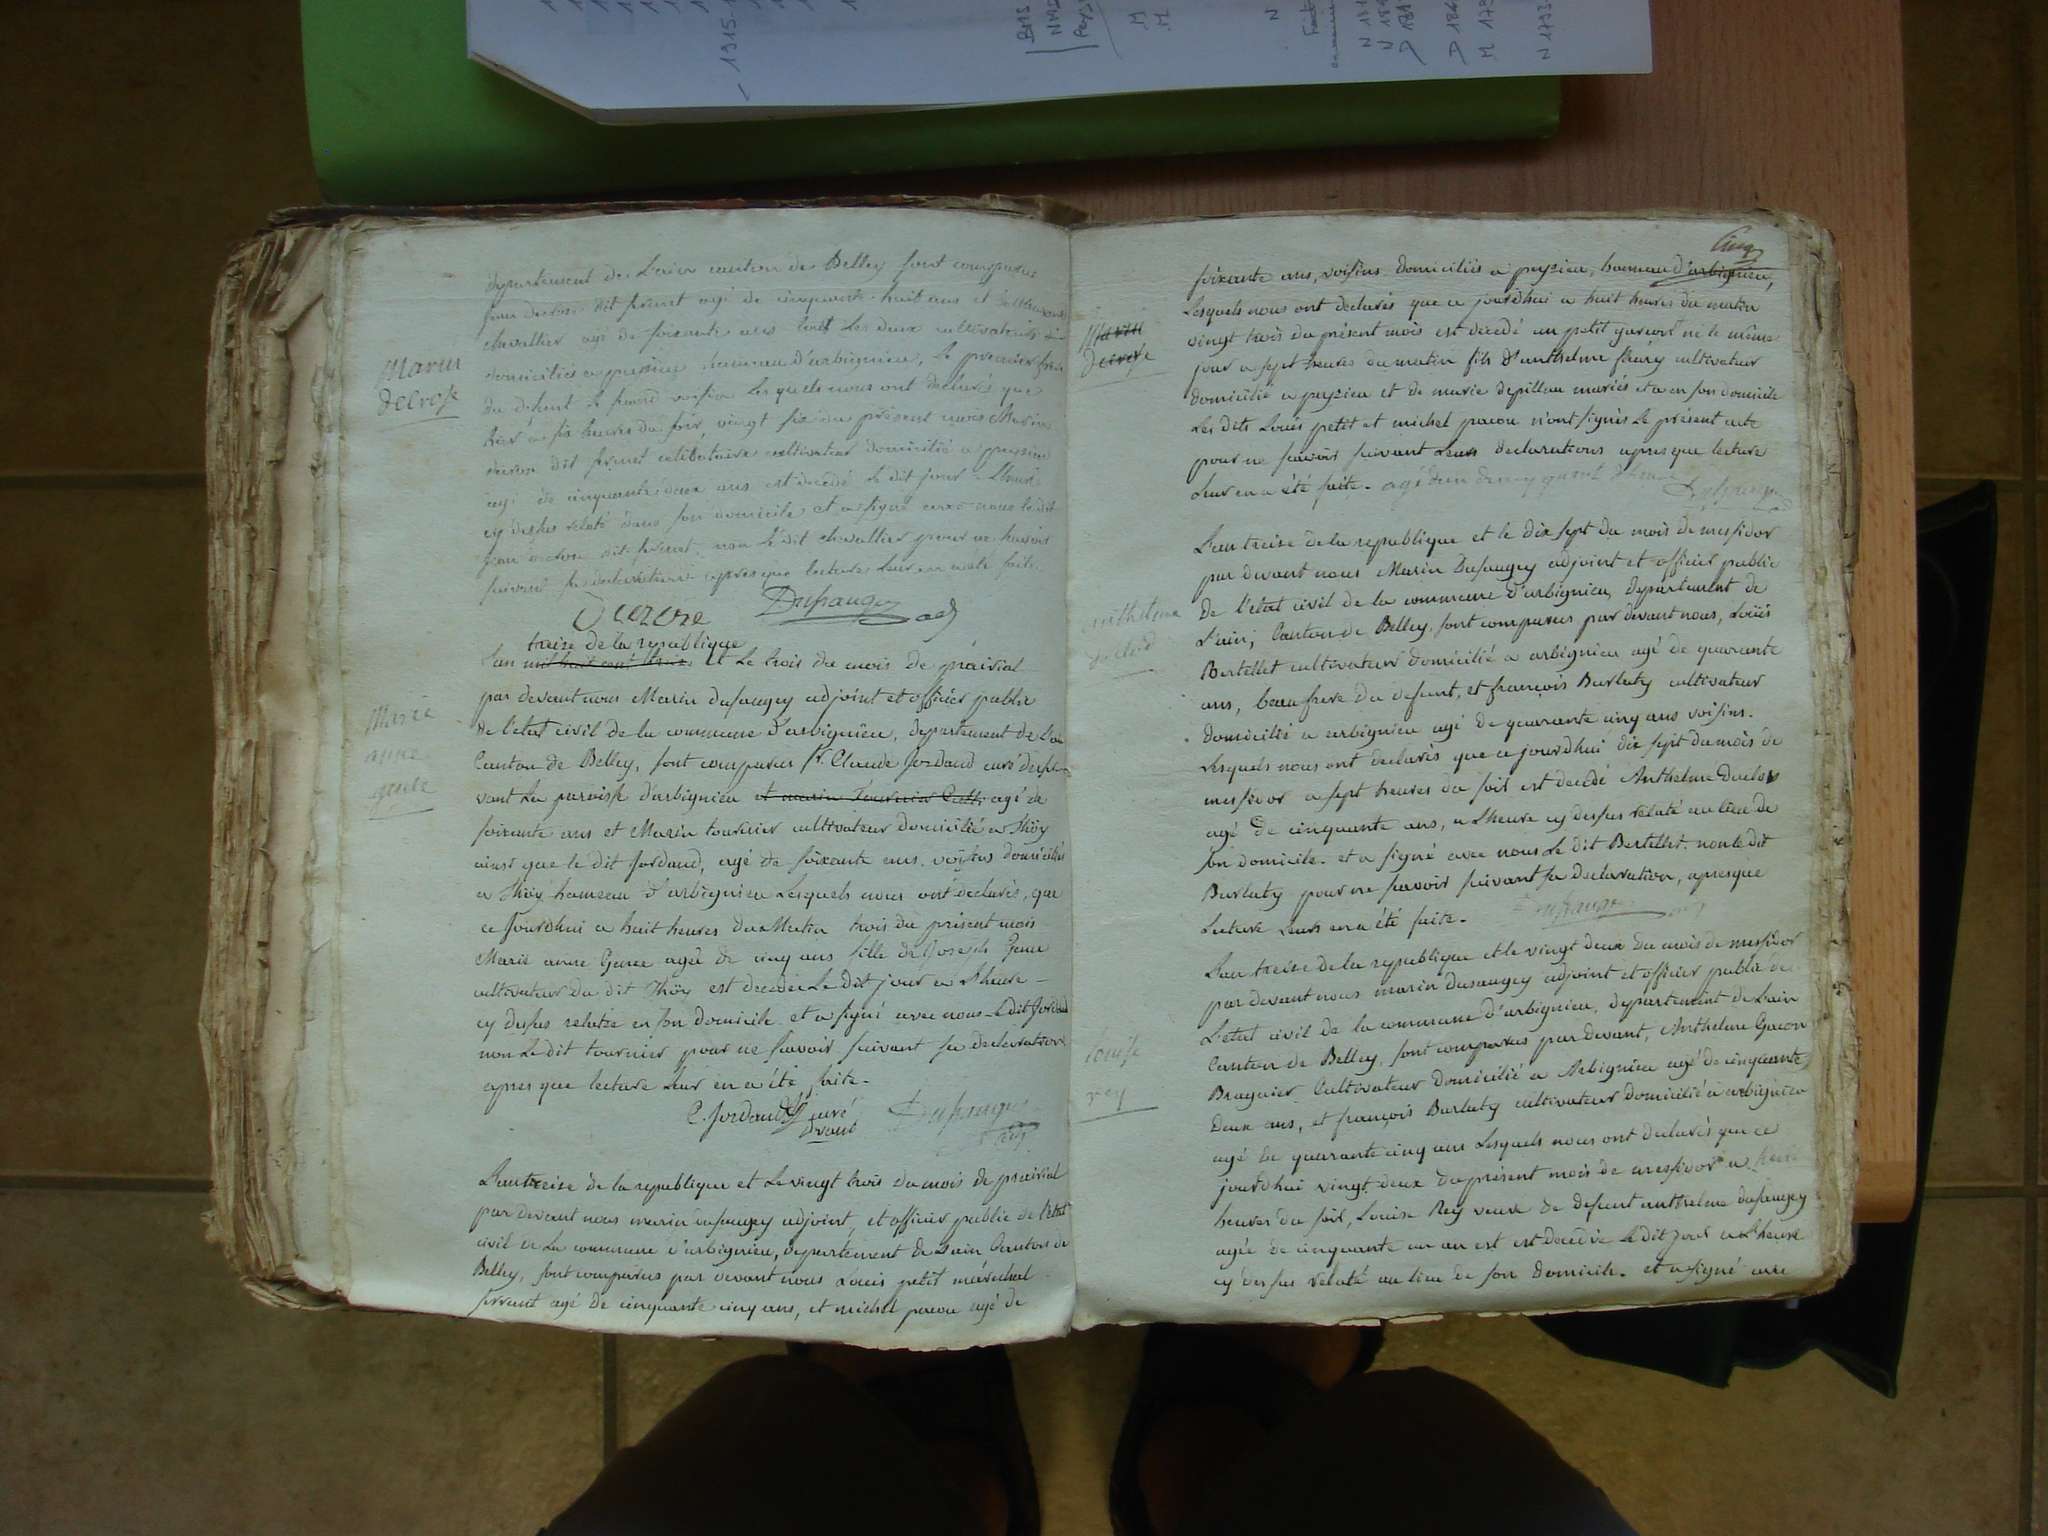 1915-
BMS
NMD
M
M
N
Marin
Decrose
departement de L'ain canton de Belley sont comparus
jean decrose dit fornet agé de cinquante-huit ans et
chevallier agé de soixante ans tout Les deux cultivateurs
domiciliés a peyzieu hameau d'arbignieu, Le premier frere
du défunt Le second voisin Lesquels nous ont déclarés que
hier a six heures du soir vingt six du présent mois Marin
decrose dit fornet celibataire cultivateur domicilié a peyzieu
agé de cinquante deux ans est decedé Le dit jour a L'heure
cy dessus relaté dans son domicile et a signé avec nous le dit
jean decrose dit fornet, non Le dit chevallier pour ne savoir
suivant sa declaration apres que lecture Leur en a été faite.
Decrose Dusaugey adj
Marie
anne
gente
treize de la republique
L'an mil huit cent treize et Le trois du mois de prairial
par devant nous Marin dusaugey adjoint et officier public
de l'état civil de la commune d'arbignieu, departement de L'ain
Canton de Belley, sont comparus Sr. Claude Jordaud curé desser-
vant La paroisse d'arbignieu et marin Tournier Cult. agé de
soixante ans et Marin tournier cultivateur domicilié a Thöy
ainsi que le dit Jordaud, agé de soixante ans. voisins domiciliés
a Thöy hameau d'arbignieu Lesquels nous ont déclarés, que
ce Jourdhui a huit heures du Matin trois du présent mois
Marie anne Gente agée de cinq ans fille de Joseph Gente
cultivateur du dit Thöy est decedée Le dit jour a L'heure -
cy dessus relatée en son domicile et a signé avec nous Le dit Jordaud
non Le dit tournier pour ne savoir suivant sa declaration
apres que lecture Leur en a été faite.
C. Jordaud curé Dusaugey
dvant adj
L'an treize de la republique et Le vingt trois du mois de prairial
par devant nous marin dusaugey adjoint, et officier public de l'etat
civil de La commune d'arbignieu, departement de L'ain Canton de
Belley, sont comparus par devant nous Louis petit maréchal
ferrant agé de cinquante cinq ans, et michel pacou agé de
Cinq
soixante ans, voisins domiciliés a peyzieu, hameau d'arbignieu,
Marin
Decrose
Lesquels nous ont declarés que ce jourdhui a huit heures du matin
vingt trois du présent mois est decedé un petit garcont né le même
jour a sept heures du matin fils d'anthelme fleury cultivateur
domicilié a peyzieu et de marie depillou mariés et a en son domicile
Les dits Louis petit et michel pacou n'ont signés Le présent acte
pour ne savoir suivant Leurs declarations apres que lecture
Leur en a été faite. Dusaugey
anthelme
duclod
L'an treize de la republique et le dix sept du mois de messidor
par devant nous Marin Dusaugey adjoint et officier public
De l'état civil de la commune d'arbignieu, departement de
L'ain, Canton de Belley, sont comparus par devant nous, Loüis
Bertellet cultivateur domicilié a arbignieu agé de quarante
ans, beau frere du defunt, et françois Burlaty cultivateur
domicilié a arbignieu agé de quarante cinq ans voisins.
Lesquels nous ont declarés que ce jourdhui dix sept du mois de
messidor a sept heures du soir est decedé Anthelme Duclos
agé de cinquante ans, a L'heure cy dessus relaté au lieu de
son domicile. et a signé avec nous Le dit Bertellet. non le dit
Burlaty pour ne savoir suivant sa declaration, apres que
Lecture Leurs en a été faite. Dusaugey adj
Louise
rey
L'an treize de la republique et le vingt deux du mois de messidor
par devant nous marin dusaugey adjoint et officier public de
L'état civil de la commune d'arbignieu, departement de L'ain
Canton de Belley, sont comparus par devant, Anthelme Gacon
Braguier Cultivateur domicilié a Arbignieu agé de cinquante
Deux ans, et françois Burlaty cultivateur domicilié a arbignieu
agé de quarante cinq ans Lesquels nous ont declarés que ce
jourd'hui vingt deux du présent mois de messidor a
heures du soir, Louise Rey veuve de defunt anthelme dusaugey
agée de cinquante un an est est decedée Le dit jour a L'heure
cy dessus relaté au lieu de son domicile. et a signé avec